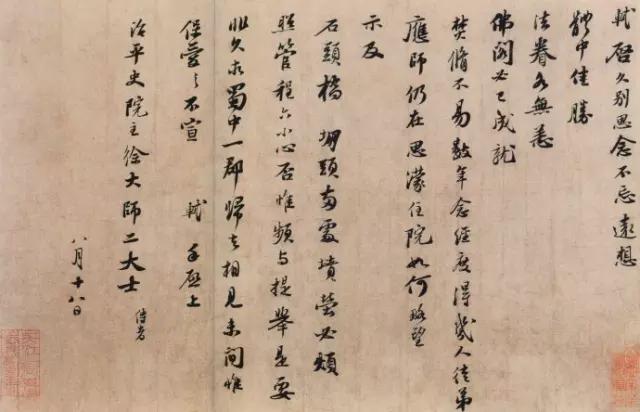 軾啓久别思念不忘遠想
體中佳勝
法眷各無恙
佛閣必已成就
焚脩不易數年念經度得幾人徒弟
應師仍在思濛住院如何略望
示及
石頭橋堋頭兩處墳塋必煩
照管程六小心否惟頻与提舉是要
非久求蜀中一郡歸去相見未間惟
保愛之不宣 軾手啓上
治平史院主徐大師二大士侍者
八月十八日